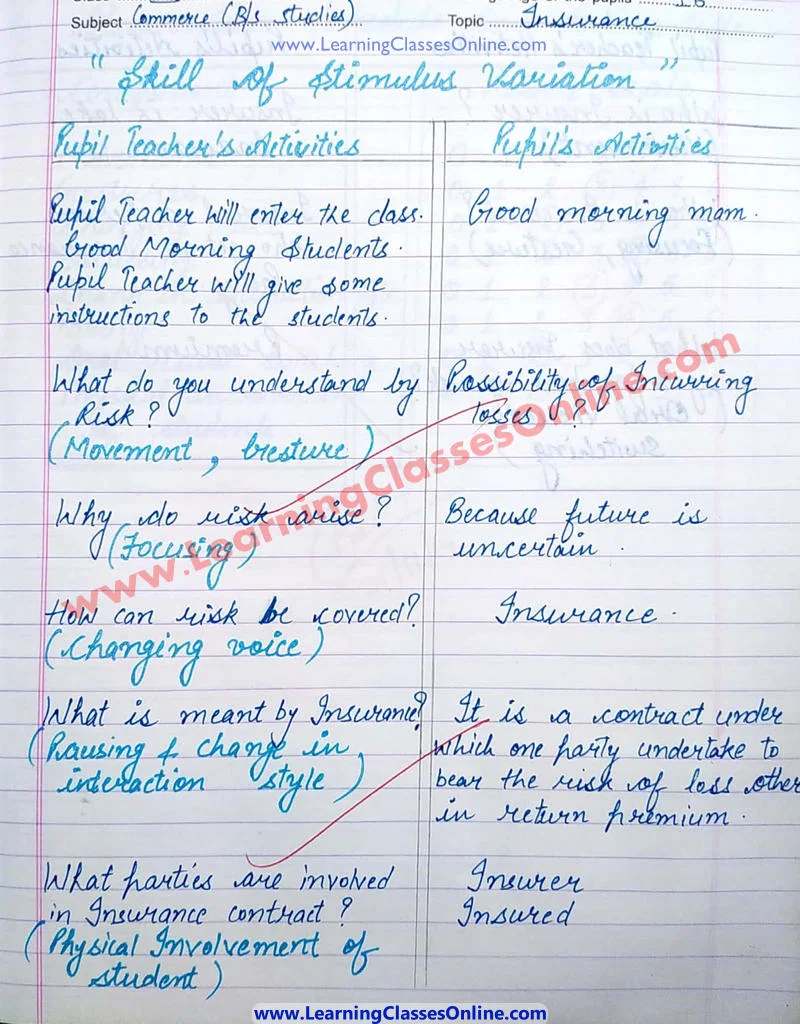 Subject Commerce (B/s studies) Topic Insurance
www.LearningClassesOnline.com
"Skill of Stimulus Variation"
Pupil Teacher's Activities
Pupil's Activities
Pupil Teacher will enter the class.
Good Morning Students.
Pupil Teacher will give some
instructions to the students.
Good morning mam.
What do you understand by
Risk?
(Movement, Gesture)
Possibility of Incurring
losses?
Why do risk arise?
(Focusing)
Because future is
uncertain.
How can risk be covered?
(Changing voice)
Insurance.
What is meant by Insurance?
(Pausing & change in
interaction style)
It is a contract under
which one party undertake to
bear the risk of loss other
in return premium.
What parties are involved
in Insurance contract?
(Physical Involvement of
student)
Insurer
Insured
www.LearningClassesOnline.com
www.LearningClassesOnline.com